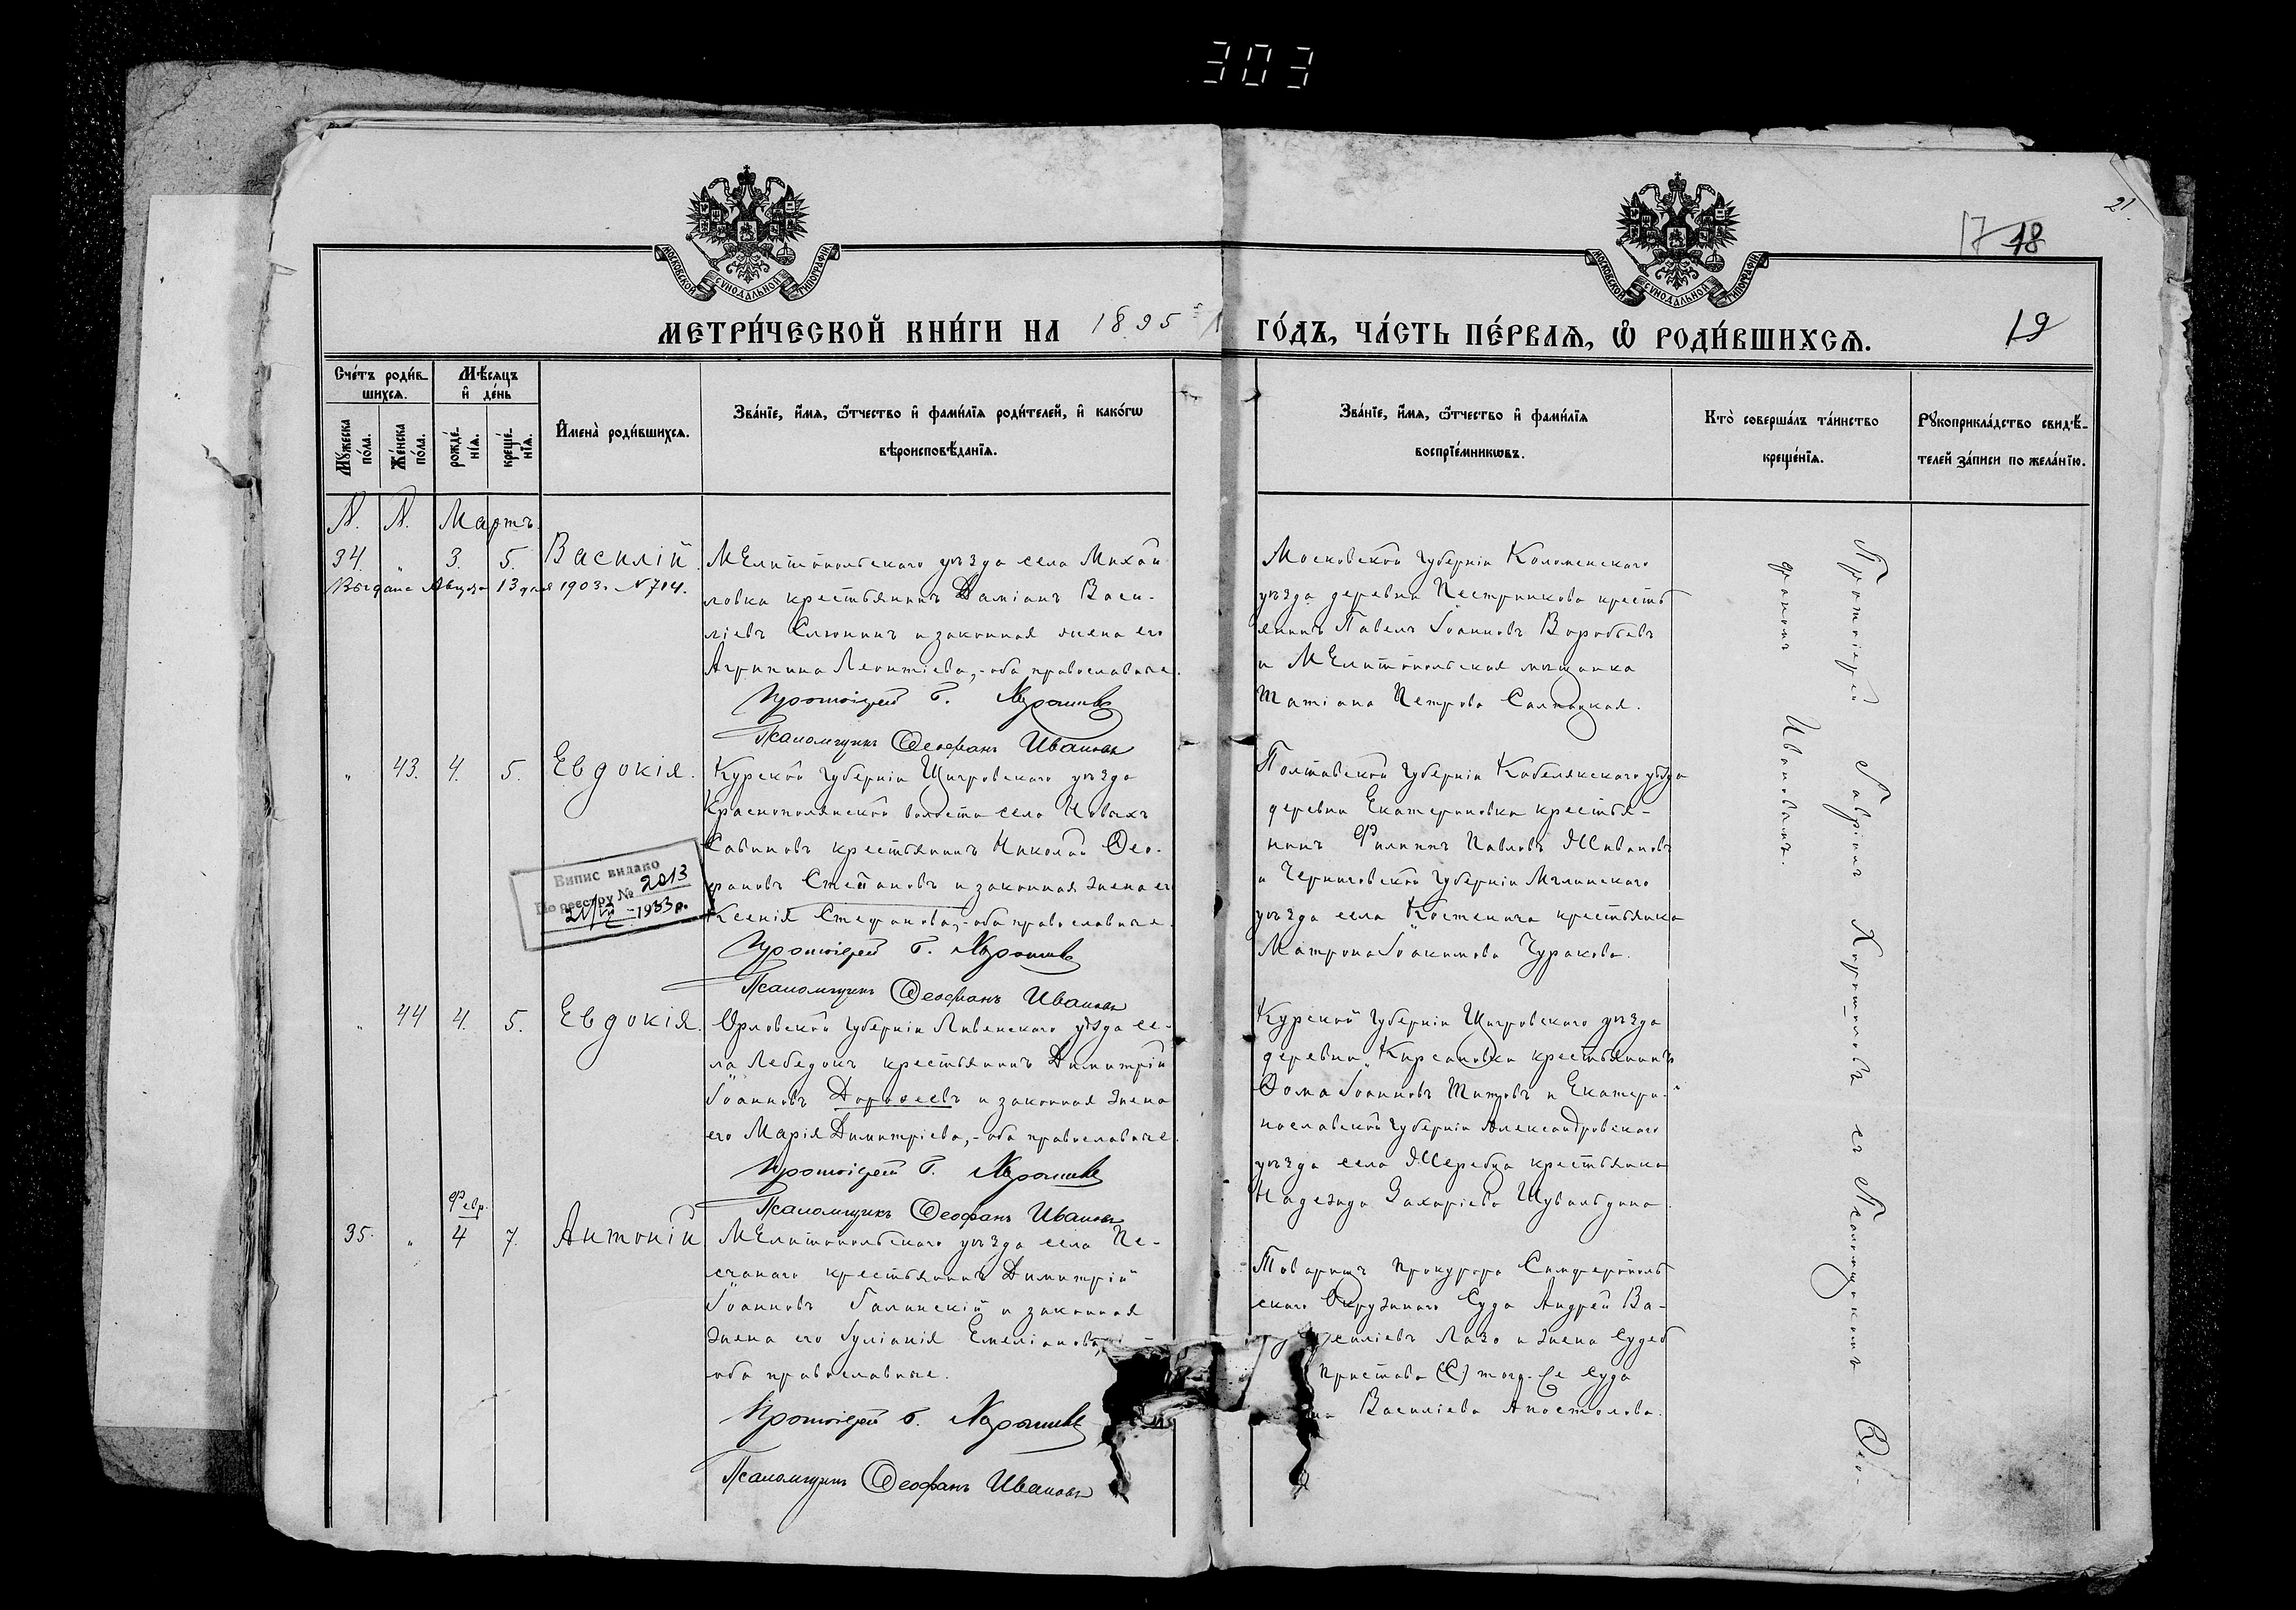 303
21
17 18
МОСКОВСКОЙ СУНОДАЛЬНОЙ ТИПОГРАФІИ
МОСКОВСКОЙ СУНОДАЛЬНОЙ ТИПОГРАФІИ
МЕТРИ́ЧЕСКОЙ КНИ́ГИ НА 1895 ГО́ДЪ, ЧА́СТЬ ПЕ́РВАѦ, Ѡ РОДИ́ВШИХСѦ.
19
Сче́тъ роди́в-
шихсѧ.
Мѣ́сѧцъ
и де́нь
Мꙋ́жеска
по́ла.
Же́нска
по́ла.
рожде́-
нїѧ.
креще́-
нїѧ.
Имена̀ роди́вшихсѧ.
Зва́нїе, и́мѧ, ѻ́тчество и фами́лїѧ роди́телей, и како́гѡ
вѣроисповѣ́данїѧ.
Зва́нїе, и́мѧ, ѻ́тчество и фами́лїѧ
воспрїе́мникѡвъ.
Кто̀ соверша́лъ та́инство
креще́нїѧ.
Рꙋкоприкла́дство свидѣ́-
телей за́писи по жела́нїю.
N. N. Мартъ.
34. „ 3. 5. Василій.
Выдано Августа 13 дня 1903 г. N 704.
Мелитопольскаго уѣзда села Михай
ловки крестьянинъ Даміанъ Васи-
ліевъ Слюнинъ и законная жена его
Агрипина Леонтіева, - оба православные.
Протоіерей Г.
Псаломщикъ Ѳеофанъ Ивановъ
Московской губерніи Коломенскаго
уѣзда деревни Пестриково кресть
янинъ Павелъ Іоанновъ Воробьевъ
и Мелитопольская мѣщанка
Татіана Петрова
„ 43. 4. 5. Евдокія.
Курской губерніи Щигровскаго уѣзда
Краснополянской волости села Новыхъ
Савиновъ крестьянинъ Николай Ѳео-
фановъ Степановъ и законная жена его
Ксенія Стефанова, - оба православные.
Протоіерей Г.
Псаломщикъ Ѳеофанъ Ивановъ
Випис видано
По реєстру № 2013
1933 р.
Полтавской губерніи Кобелякскаго уѣзда
деревни Екатериновки крестья-
нинъ Филиппъ Павловъ
и Черниговской губерніи Мглинскаго
уѣзда села Костеничи крестьянка
Матрона Іоакимова Чуракова.
„ 44 4. 5. Евдокія.
Орловской губерніи Ливенскаго уѣзда се-
ла Лебедокъ крестьянинъ Димитрій
Іоанновъ Дороѳеевъ и законная жена
его Марія Димитріева, - оба православные.
Протоіерей Г.
Псаломщикъ Ѳеофанъ Ивановъ
Курской губерніи Щигровскаго уѣзда
деревни Кирсановки крестьянинъ
Ѳома Іоанновъ Титовъ и Екатери-
нославской губерніи Александровскаго
уѣзда села Жеребца крестьянка
Надежда Захаріева
Февр.
35. „ 4 7. Антоній
Мелитопольскаго уѣзда села Пе-
счанаго крестьянинъ Димитрій
Іоанновъ Галинскій и законная
жена его Іуліанія Емеліанова,
оба православные.
Протоіерей Г.
Псаломщикъ Ѳеофанъ Ивановъ
Товарищъ прокурора Симферополь
скаго Окружнаго Суда Андрей Ва-
силіевъ Лазо и жена судеб
пристава суда
Василіева Апостолова.
Протоіерей Гавріилъ съ Псаломщикомъ Ѳео-
фаномъ Ивановымъ.